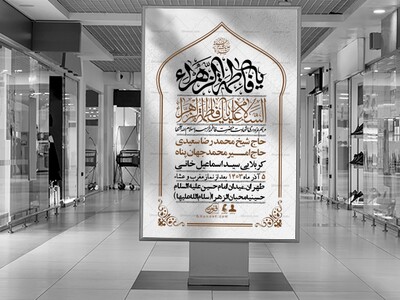 یا فاطمة الزهراء
السلام علیک یا فاطمة الزهرا
حاج شیخ محمدرضا سعیدی
حاج امیر محمد جهان پناه
کربلایی سید اسماعیل خانی
۵ آذر ماه ۱۴۰۳ بعد از نماز مغرب و عشاء
طهران، میدان امام حسین علیه السلام
حسینیه محبان الزهرا (سلام الله علیها)